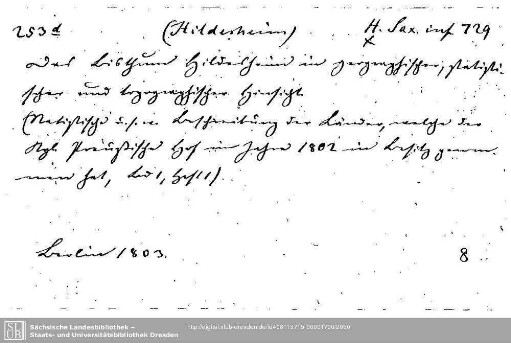 253d (Hildesheim) H. Sax. inf 729
x
Das Bisthum Hildesheim in geographischer, statisti-
scher und topographischer Hinsicht.
(Statistische u.s.w. Beschreibung der Länder, welche der
Kgl. Preußische Hof im Jahre 1802 in Besitz genom-
men hat, Bd 1, Heft 1)
Berlin 1803. 8
SLUB
Sächsische Landesbibliothek –
Staats- und Universitätsbibliothek Dresden